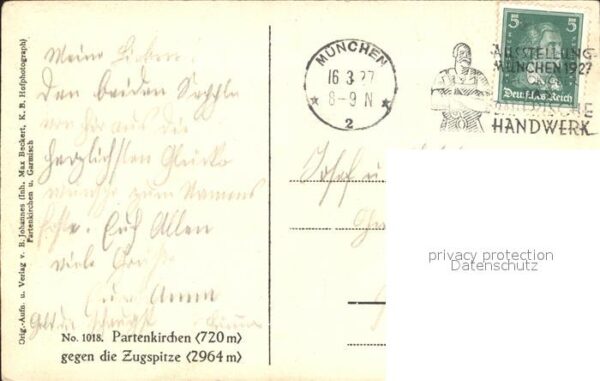 Meine Lieben!
Den beiden
von hier aus die
herzlichsten Glück-
wünsche zum Namens
feste. Euch Allen
viele Grüße
Eure Anna
Orig.-Aufn. u. Verlag v. B. Johannes (Inh. Max Beckert, K. B. Hofphotograph)
Partenkirchen u. Garmisch
No. 1018. Partenkirchen (720 m)
gegen die Zugspitze (2964 m)
MÜNCHEN
16 3 27
8-9 N
2
AUSSTELLUNG
MÜNCHEN 1927
DAS
BAYERISCHE
HANDWERK
5 5
Deutsches Reich
Josef u.
privacy protection
Datenschutz